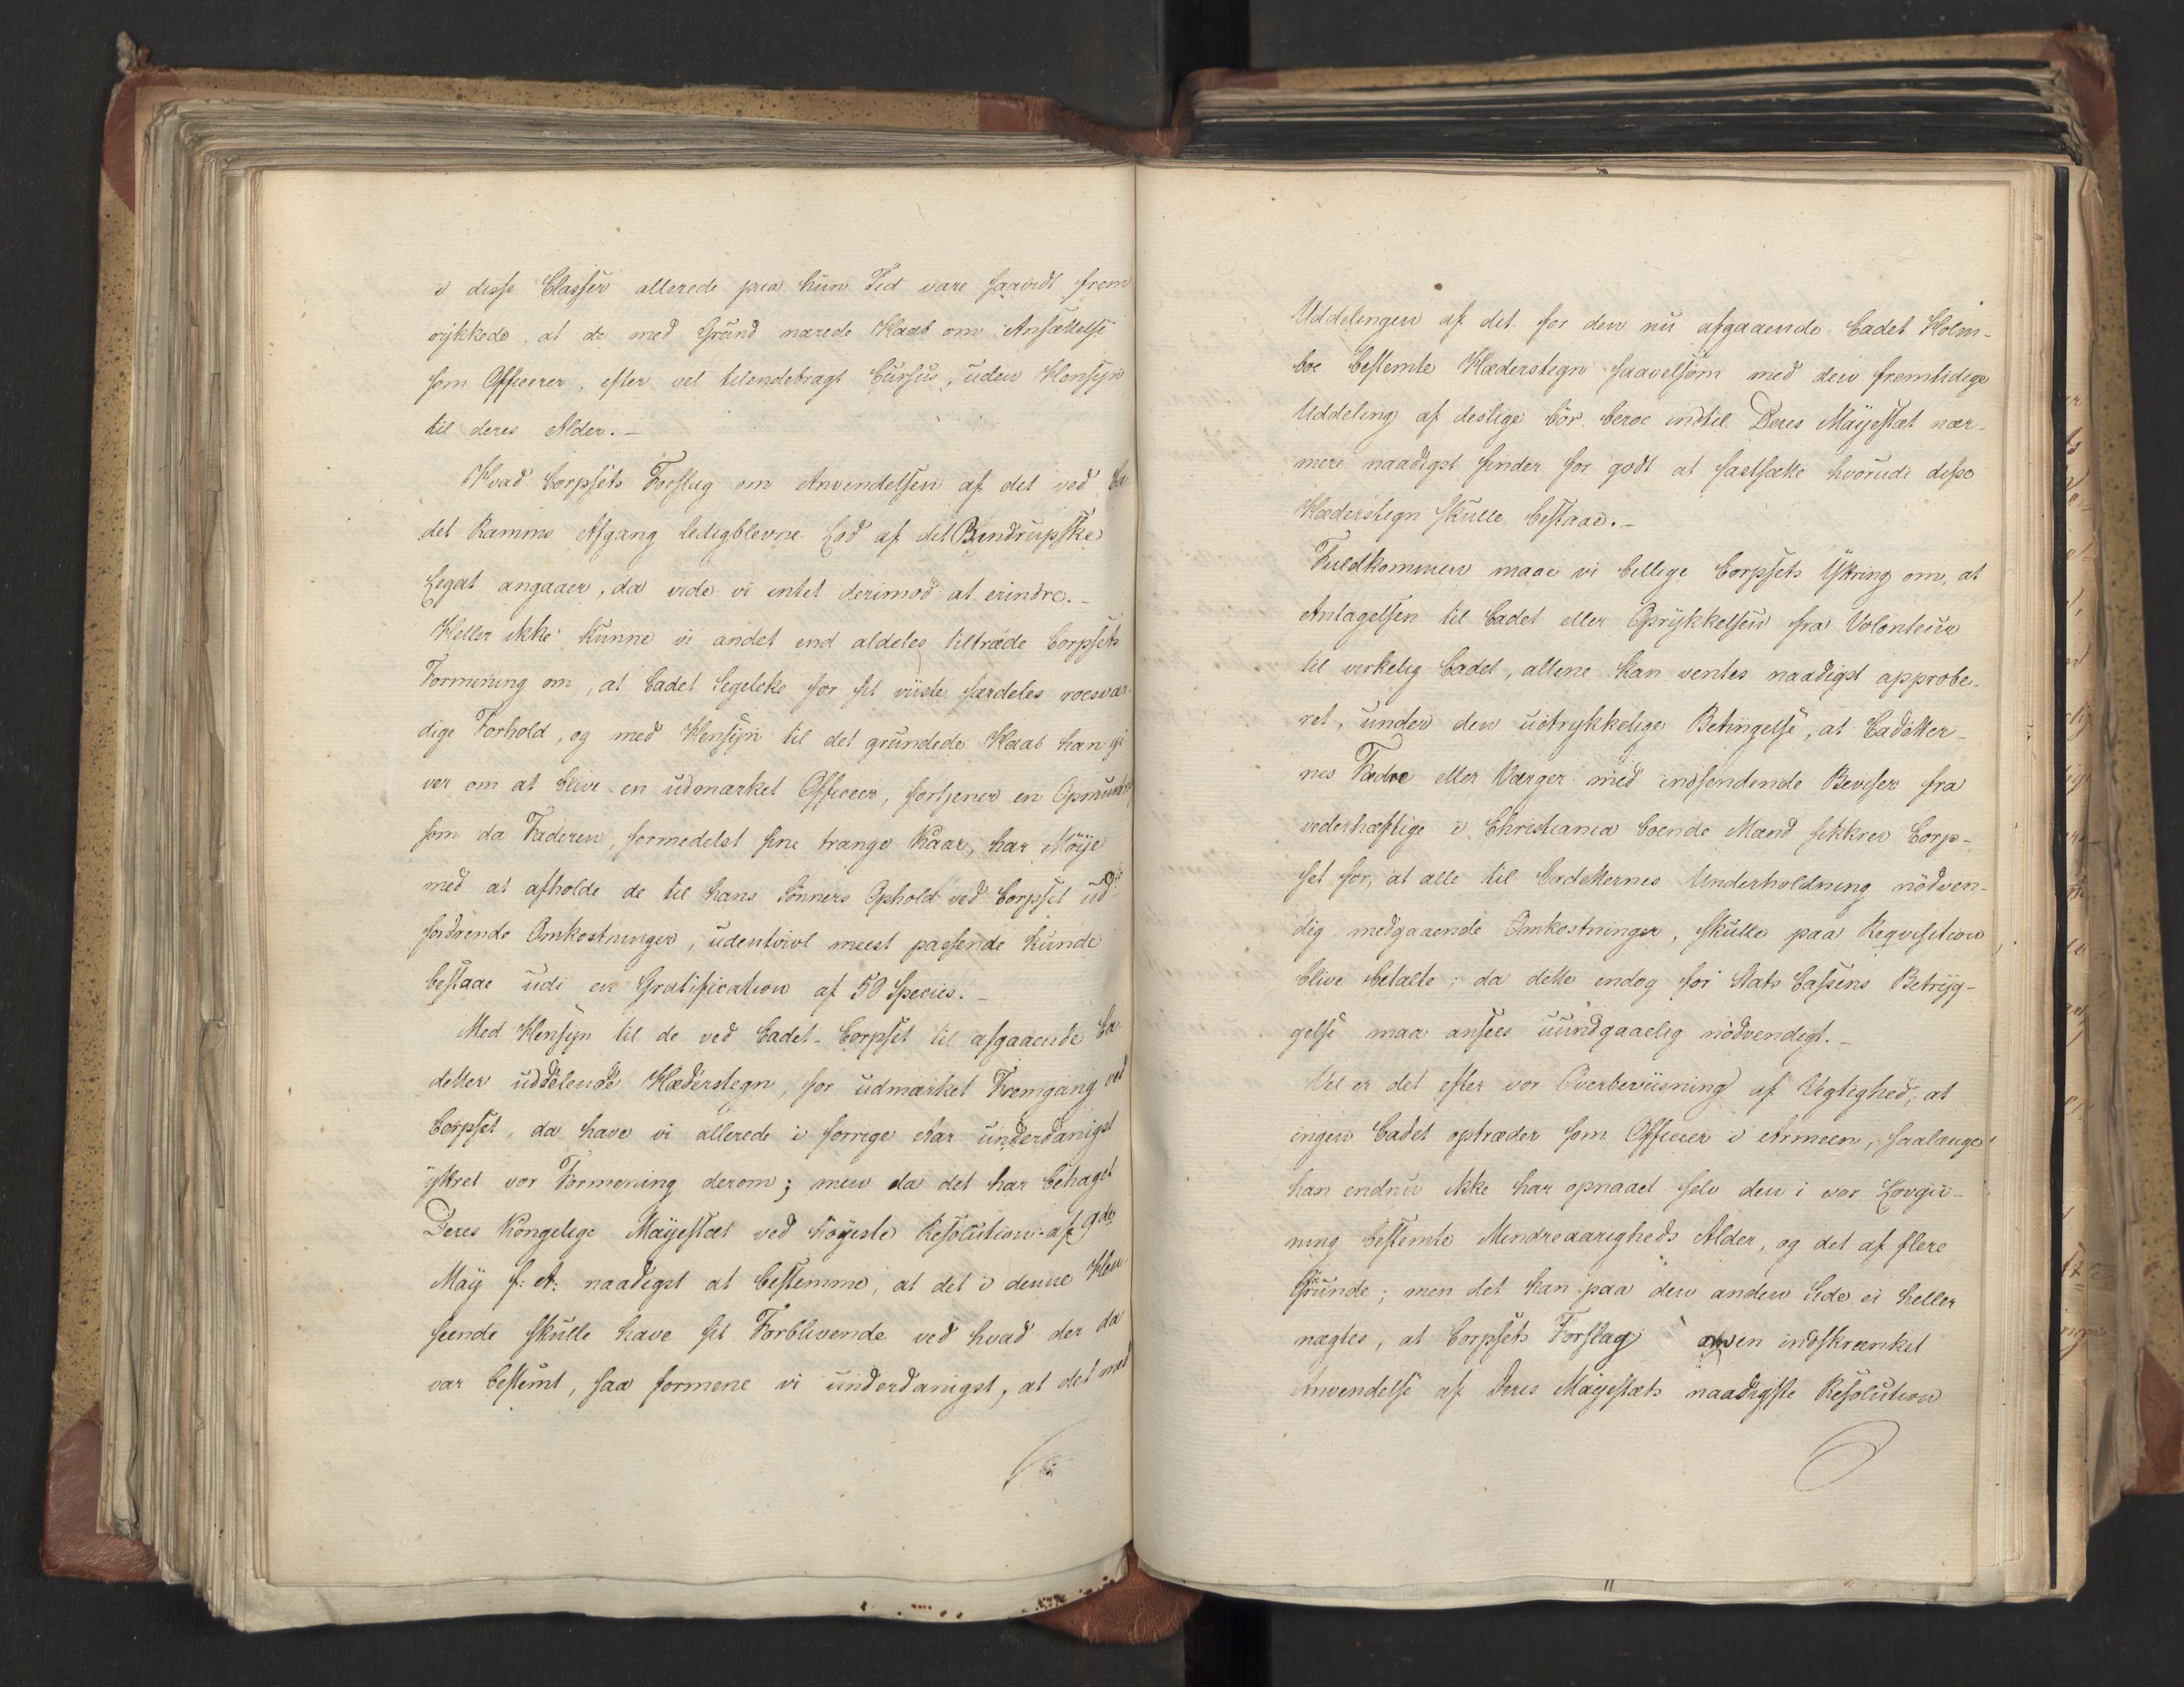 i disse Classer allerede paa hiin Tid vare saavidt frem
rykkede, at de med Grund nærede Haab om Ansættelse
som Officerer, efter vel tilendebragt Cursus, uden Hensyn
til deres Alder. –
Hvad Corpsets Forslag om Anvendelsen af det ved Ca-
det Ramms Afgang ledigblevne Lod af det Bendrupske
Legat angaaer, da vide vi intet derimod at erindre. –
Heller ikke kunne vi andet end aldeles tiltræde Corpsets
Formening om, at Cadet Segelcke for sit viiste særdeles roesvær-
dige Forhold, og med Hensyn til det grundede Haab han gi
ver om at blive en udmærket Officeer, fortjener en Opmuntr
som da Faderen, formedelst sine trange Kaar, har Møye
med at afholde de til hans Sønners Ophold ved Corpset ud-
fordrende Omkostninger, udentvivl meest passende kunde
bestaae udi en Gratification af 50 Species. –
Med Hensyn til de ved Cadet-Corpset til afgaaende Ca-
detter uddelende Hæderstegn, for udmærket Fremgang ved
Corpset, da have vi allerede i forrige Aar underdanigst
yttret vor Formening derom; men da det har behaget
Deres Kongelige Mayestæt ved høyeste Resolution af 9de
May f: A: naadigst at bestemme, at det i denne Hen
seende skulle have sit Forblivende ved hvad der da
var bestemt, saa formene vi underdanigst, at det med
Uddelingen af det for den nu afgaaende Cadet Holm-
boe bestemte Hæderstegn saavelsom med den fremtidige
Uddeling af deslige bør beroe indtil Deres Mayestæt nær-
mere naadigst finder for godt at fastsætte hvorudi disse
Hæderstegn skulle bestaae. –
Fuldkommen maae vi billige Corpsets Yttring om, at
Antagelsen til Cadet eller Oprykkelsen fra Volonteur
til virkelig Cadet, allene kan ventes naadigst approbe-
ret, under den udtrykkelige Betingelse, at Cadetter-
nes Fædre eller Værger med indsendende Beviser fra
vederhæftige i Christiania boende Mænd sikkrer Corp-
set for, at alle til Cadetternes Underholdning nødven-
dig medgaaende Omkostninger, skulle paa Requisition
blive betalte; da dette endog for Stats Cassens Betryg-
gelse maa ansees uundgaaelig nødvendigt. –
Vel er det efter vor Overbeviisning af Vigtighed, at
ingen Cadet optræder som Officeer i Armeen, saalænge
han endnu ikke har opnaaet selv den i vor Lovgiv-
ning bestemte Mindreaarigheds Alder, og det af flere
Grunde; men det kan paa den anden Side ei heller
nægtes, at Corpsets Forslag om en indskrænket
Anvendelse af Deres Mayestæts naadigste Resolution